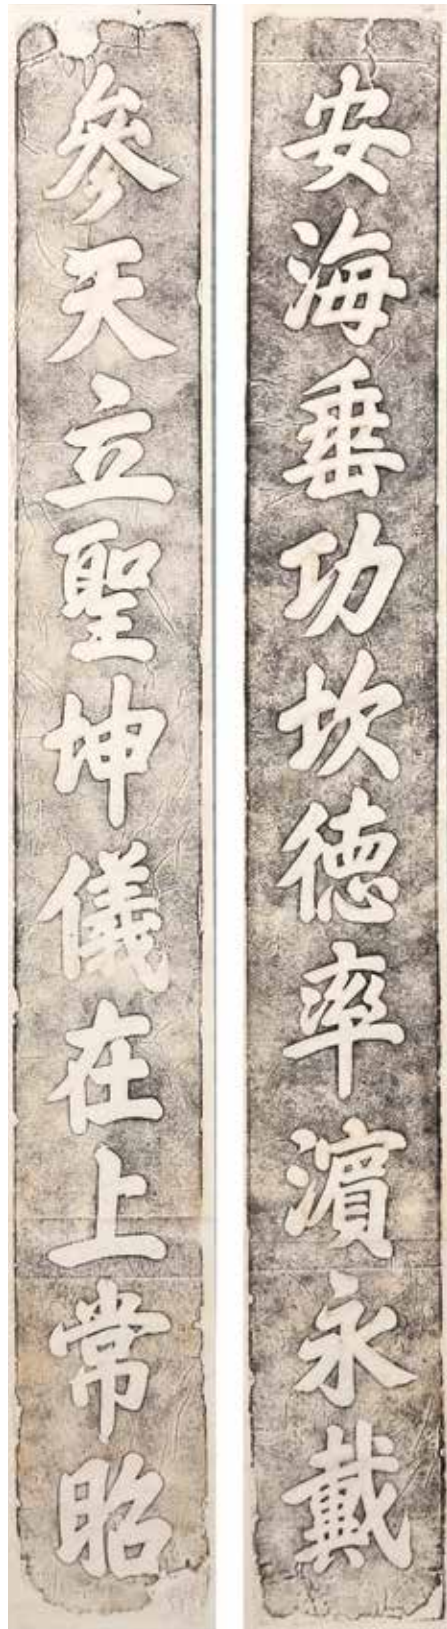 安海垂功坎德率濵永戴
參天立聖坤儀在上常昭